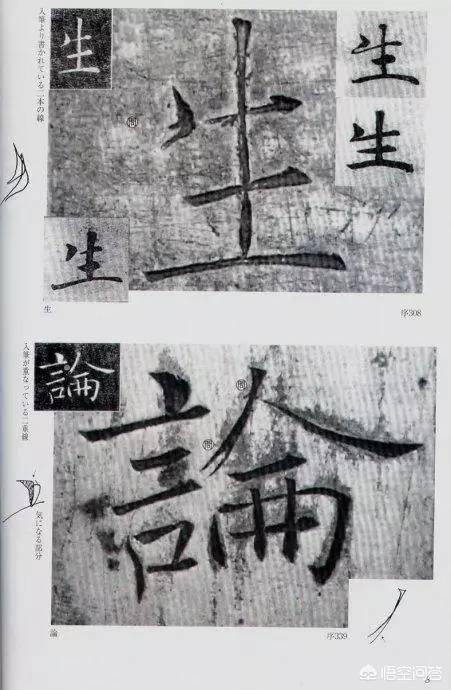 入筆より書かれている二本の線
生
生
生
生
生
問
生
序308
入筆が重なっている二重線
論
論
問
問
気になる部分
論
序339
悟空问答